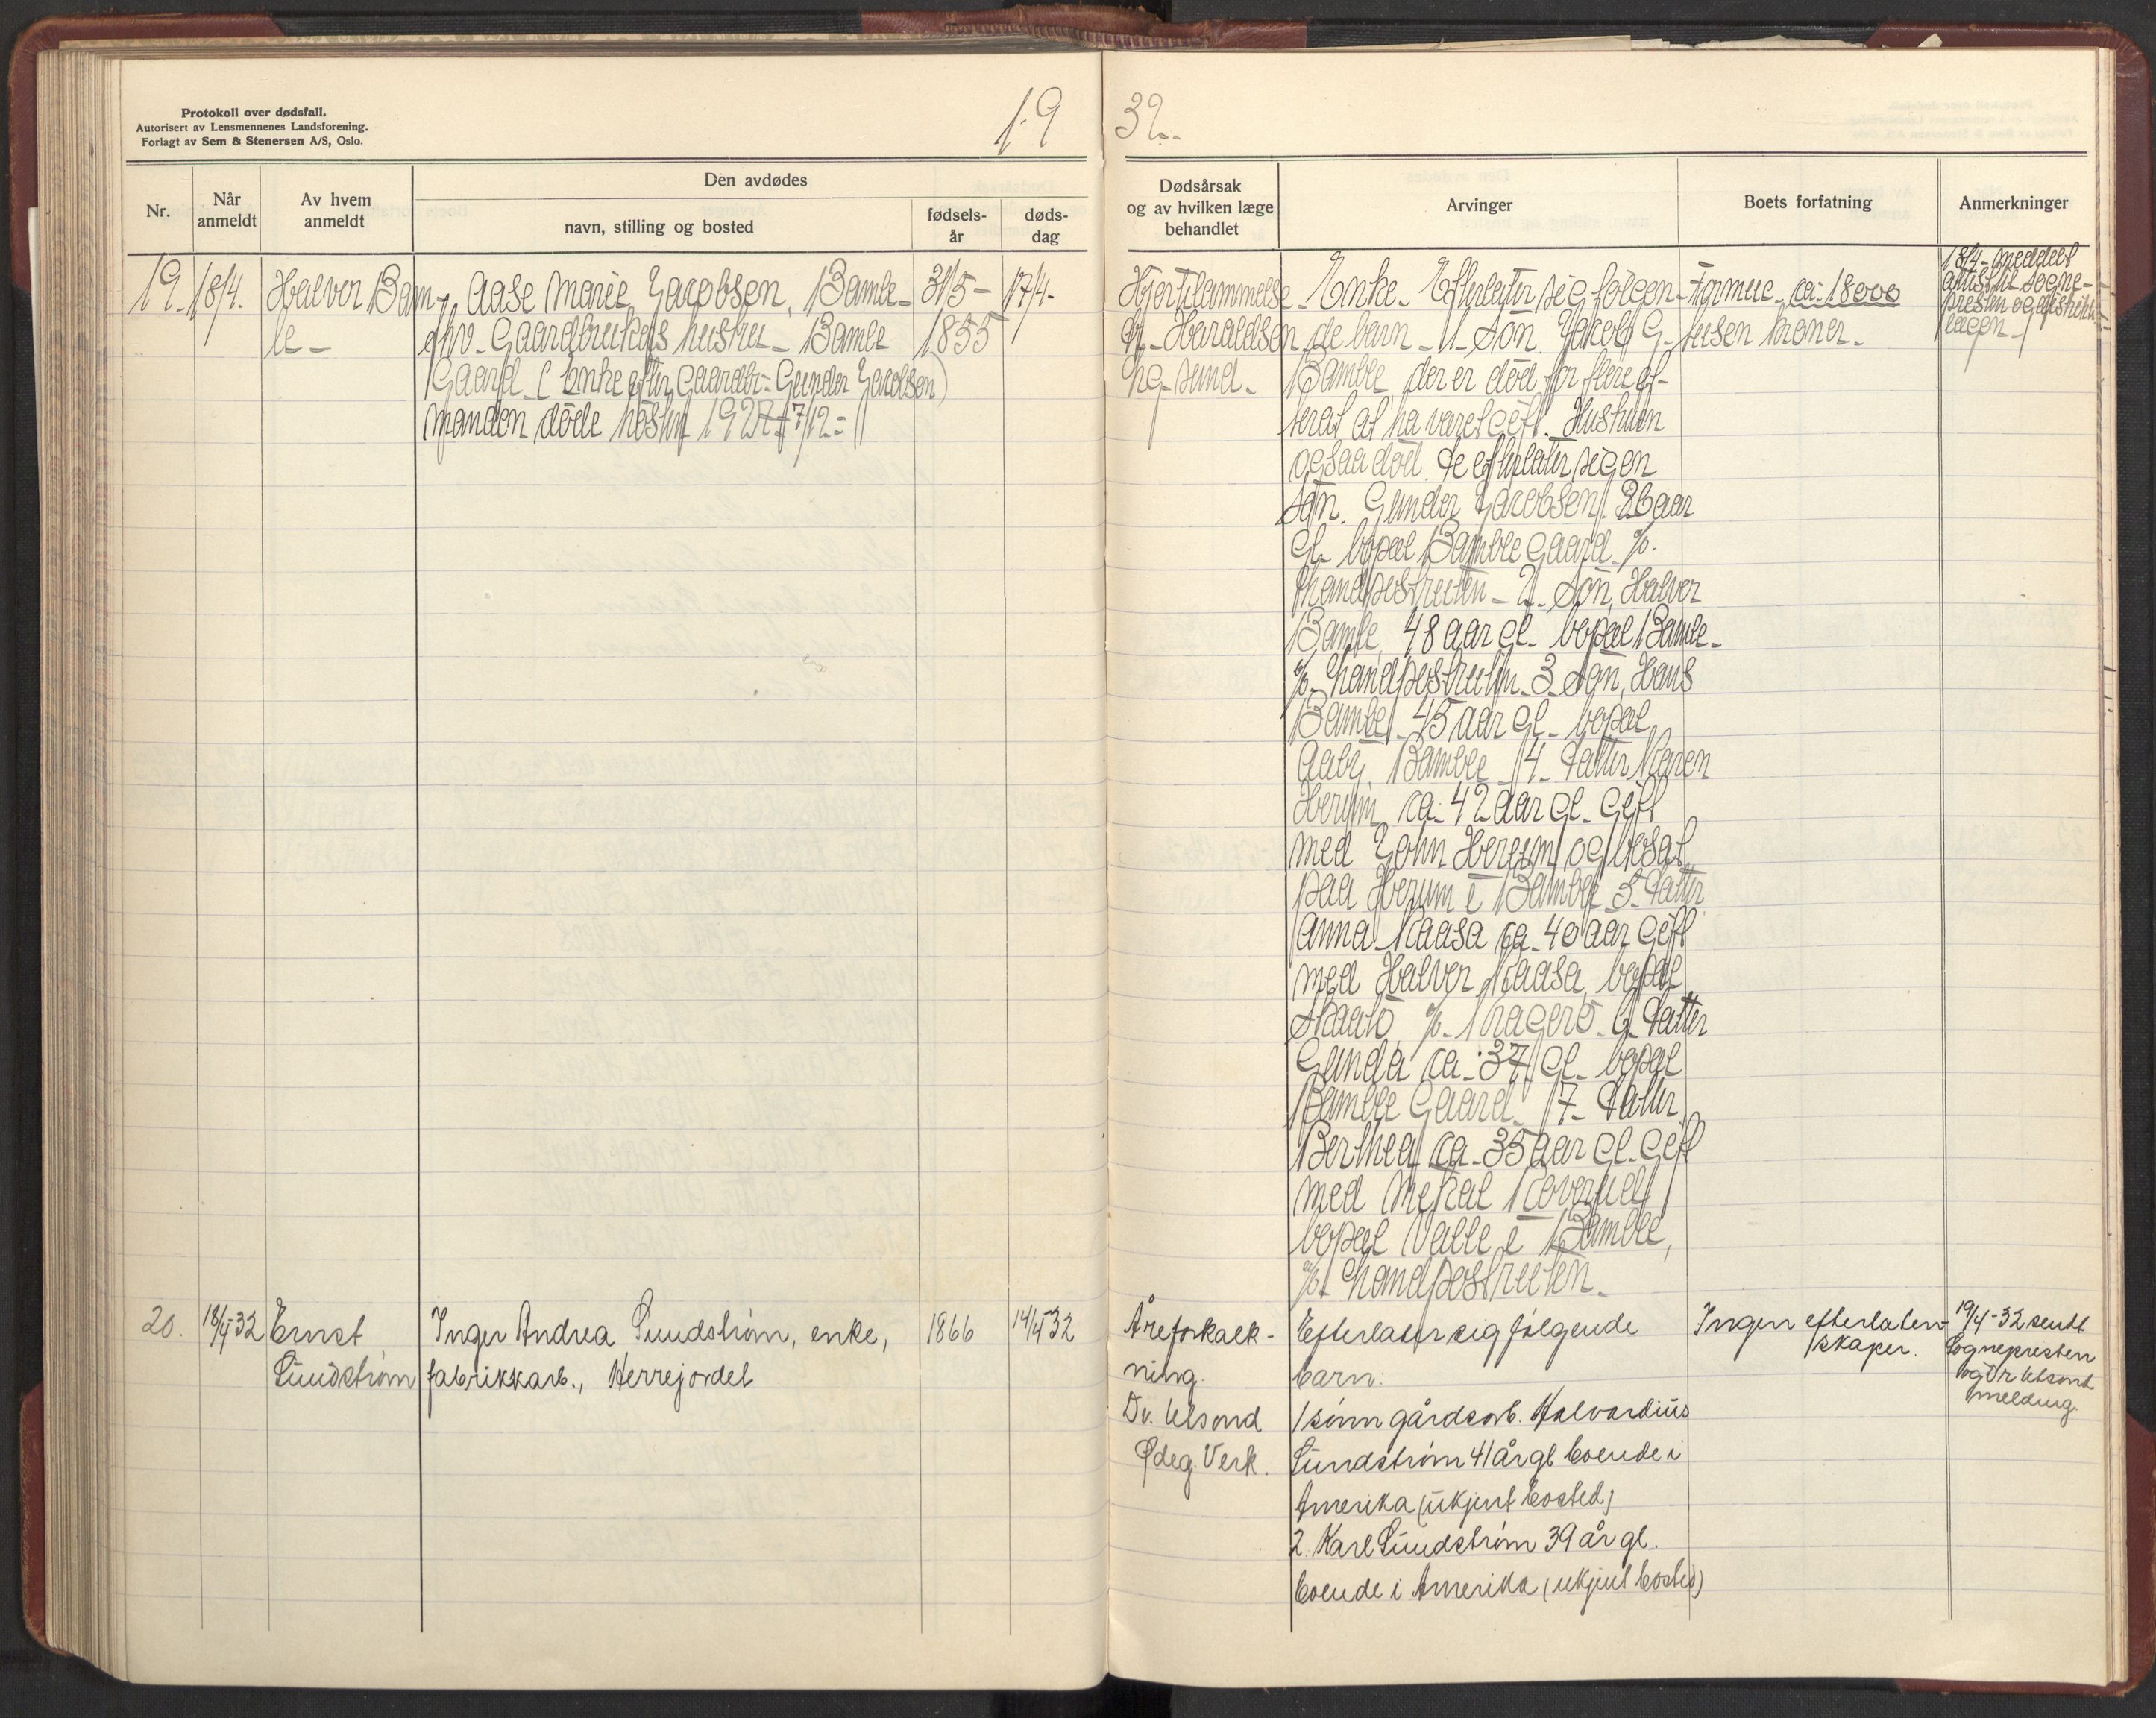 Protokoll over dødsfall.
Autorisert av Lensmennenes Landsforening.
Forlagt av Sem & Stenersen A/S, Oslo.
19
32
Nr.
Når anmeldt
Av hvem anmeldt
Den avdødes
navn, stilling og bosted
fødsels-år
døds-dag
Dødsårsak og av hvilken læge behandlet
Arvinger
Boets forfatning
Anmerkninger
19. 18/4.
Halver Bam-
le-
Aase Marie Jacobsen, Bamle-
Gaardbrukers hustru - Bamle
Gaard. (Enke efter Gaardbr. Gunder Jacobsen)
manden døde høsten 1927 7/12-
31/5-
1855
17/4-
Hjertelammelse
dr. Haraldsen
Enke. Efterlater sig følgen-
de barn - 1. Søn. Jakob G.
Bamble der er død for flere
siden at ha været gift. Hustruen
ogsaa død. De efterlater sig en
søn. Gunder Jacobsen 26 aar
gl. bopæl Bamble Gaard p/.
Landpostruten - 2. Søn, Halver
Bamle 48 aar gl. bopæl Bamle-
p/. Landpostruten. 3 Søn, Hans
Bamle 45 aar gl. bopæl
Aaby. Bamble 4. Datter Maren
Herum ca. 42 aar gl. Gift
med John Herum og bosat
paa Herum i Bamble 5. Datter
Anna Kaasa ca. 40 aar Gift
med Halvor Kaasa, bopæl
Skaatø p/. Kragerø. 6. Datter
Gunda ca. 37 gl. bopæl
Bamble Gaard. 7. Datter
Berthea ca. 35 aar gl. Gift
med
bopæl Valle i Bamble,
p/. Landpostruten.
Formue ca. 18000
tusen kroner.
18/4 - meddelt
sogne-
presten og distrikts
lægen -
20. 18/4-32
Ernst
Sundstrøm
Inger Andrea Sundstrøm, enke,
fabrikkarb., Herrejordet
1866
14/4-32
Åreforkalk-
ning.
Dr. Ulsund
Ødeg. Verk.
Efterlater sig følgende
barn:
1 sønn gårdsarb. Halvardius
Sundstrøm 41 år gl. boende i
Amerika (ukjent bosted)
2. Karl Sundstrøm 39 år gl.
boende i Amerika (ukjent bosted)
Ingen efterlaten-
skaper.
19/4-32 sendt
Sognepresten
og Dr Ulsund
melding.